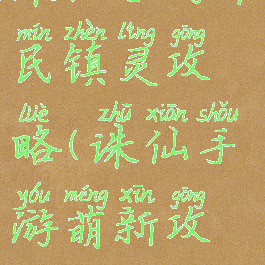 mín zhèn líng gōng
民镇灵攻
lüè zhū xiān shǒu
略(诛仙手
yóu méng xīn gōng
游萌新攻